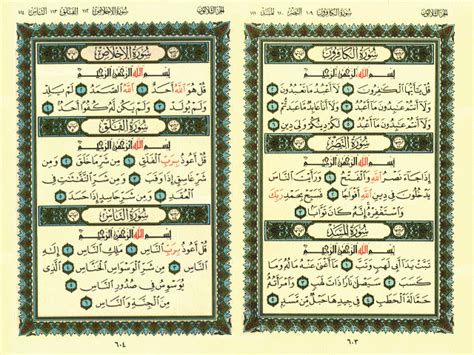 الجزء الثلاثون
سُورَةُ الكافِرُون ١٠٩ النَّصْر ١١٠ المَسَد ١١١
سُورَةُ الكَافِرُونَ
بِسْمِ اللَّهِ الرَّحْمَٰنِ الرَّحِيمِ
قُلْ يَٰٓأَيُّهَا ٱلْكَٰفِرُونَ ١ لَآ أَعْبُدُ مَا تَعْبُدُونَ ٢
وَلَآ أَنتُمْ عَٰبِدُونَ مَآ أَعْبُدُ ٣ وَلَآ أَنَا۠ عَابِدٌ مَّا عَبَدتُّمْ ٤
وَلَآ أَنتُمْ عَٰبِدُونَ مَآ أَعْبُدُ ٥ لَكُمْ دِينُكُمْ وَلِىَ دِينِ ٦
سُورَةُ النَّصْرِ
بِسْمِ اللَّهِ الرَّحْمَٰنِ الرَّحِيمِ
إِذَا جَآءَ نَصْرُ ٱللَّهِ وَٱلْفَتْحُ ١ وَرَأَيْتَ ٱلنَّاسَ
يَدْخُلُونَ فِى دِينِ ٱللَّهِ أَفْوَاجًا ٢ فَسَبِّحْ بِحَمْدِ رَبِّكَ
وَٱسْتَغْفِرْهُ إِنَّهُۥ كَانَ تَوَّابًۢا ٣
سُورَةُ المَسَدِ
بِسْمِ اللَّهِ الرَّحْمَٰنِ الرَّحِيمِ
تَبَّتْ يَدَآ أَبِى لَهَبٍ وَتَبَّ ١ مَآ أَغْنَىٰ عَنْهُ مَالُهُۥ وَمَا
كَسَبَ ٢ سَيَصْلَىٰ نَارًا ذَاتَ لَهَبٍ ٣ وَٱمْرَأَتُهُۥ
حَمَّالَةَ ٱلْحَطَبِ ٤ فِى جِيدِهَا حَبْلٌ مِّن مَّسَدٍۭ ٥
٦٠٣
الجزء الثلاثون
سُورَةُ الإِخْلَاص ١١٢ الفَلَق ١١٣ النَّاس ١١٤
سُورَةُ الإِخْلَاصِ
بِسْمِ اللَّهِ الرَّحْمَٰنِ الرَّحِيمِ
قُلْ هُوَ ٱللَّهُ أَحَدٌ ١ ٱللَّهُ ٱلصَّمَدُ ٢ لَمْ يَلِدْ
وَلَمْ يُولَدْ ٣ وَلَمْ يَكُن لَّهُۥ كُفُوًا أَحَدٌۢ ٤
سُورَةُ الفَلَقِ
بِسْمِ اللَّهِ الرَّحْمَٰنِ الرَّحِيمِ
قُلْ أَعُوذُ بِرَبِّ ٱلْفَلَقِ ١ مِن شَرِّ مَا خَلَقَ ٢ وَمِن
شَرِّ غَاسِقٍ إِذَا وَقَبَ ٣ وَمِن شَرِّ ٱلنَّفَّٰثَٰتِ فِى
ٱلْعُقَدِ ٤ وَمِن شَرِّ حَاسِدٍ إِذَا حَسَدَ ٥
سُورَةُ النَّاسِ
بِسْمِ اللَّهِ الرَّحْمَٰنِ الرَّحِيمِ
قُلْ أَعُوذُ بِرَبِّ ٱلنَّاسِ ١ مَلِكِ ٱلنَّاسِ ٢
إِلَٰهِ ٱلنَّاسِ ٣ مِن شَرِّ ٱلْوَسْوَاسِ ٱلْخَنَّاسِ ٤ ٱلَّذِى
يُوَسْوِسُ فِى صُدُورِ ٱلنَّاسِ ٥
مِنَ ٱلْجِنَّةِ وَٱلنَّاسِ ٦
٦٠٤